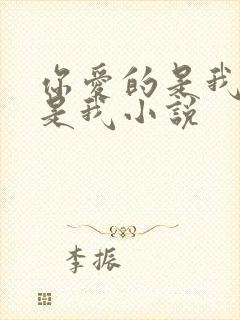 你愛的是我
是我小說
李振